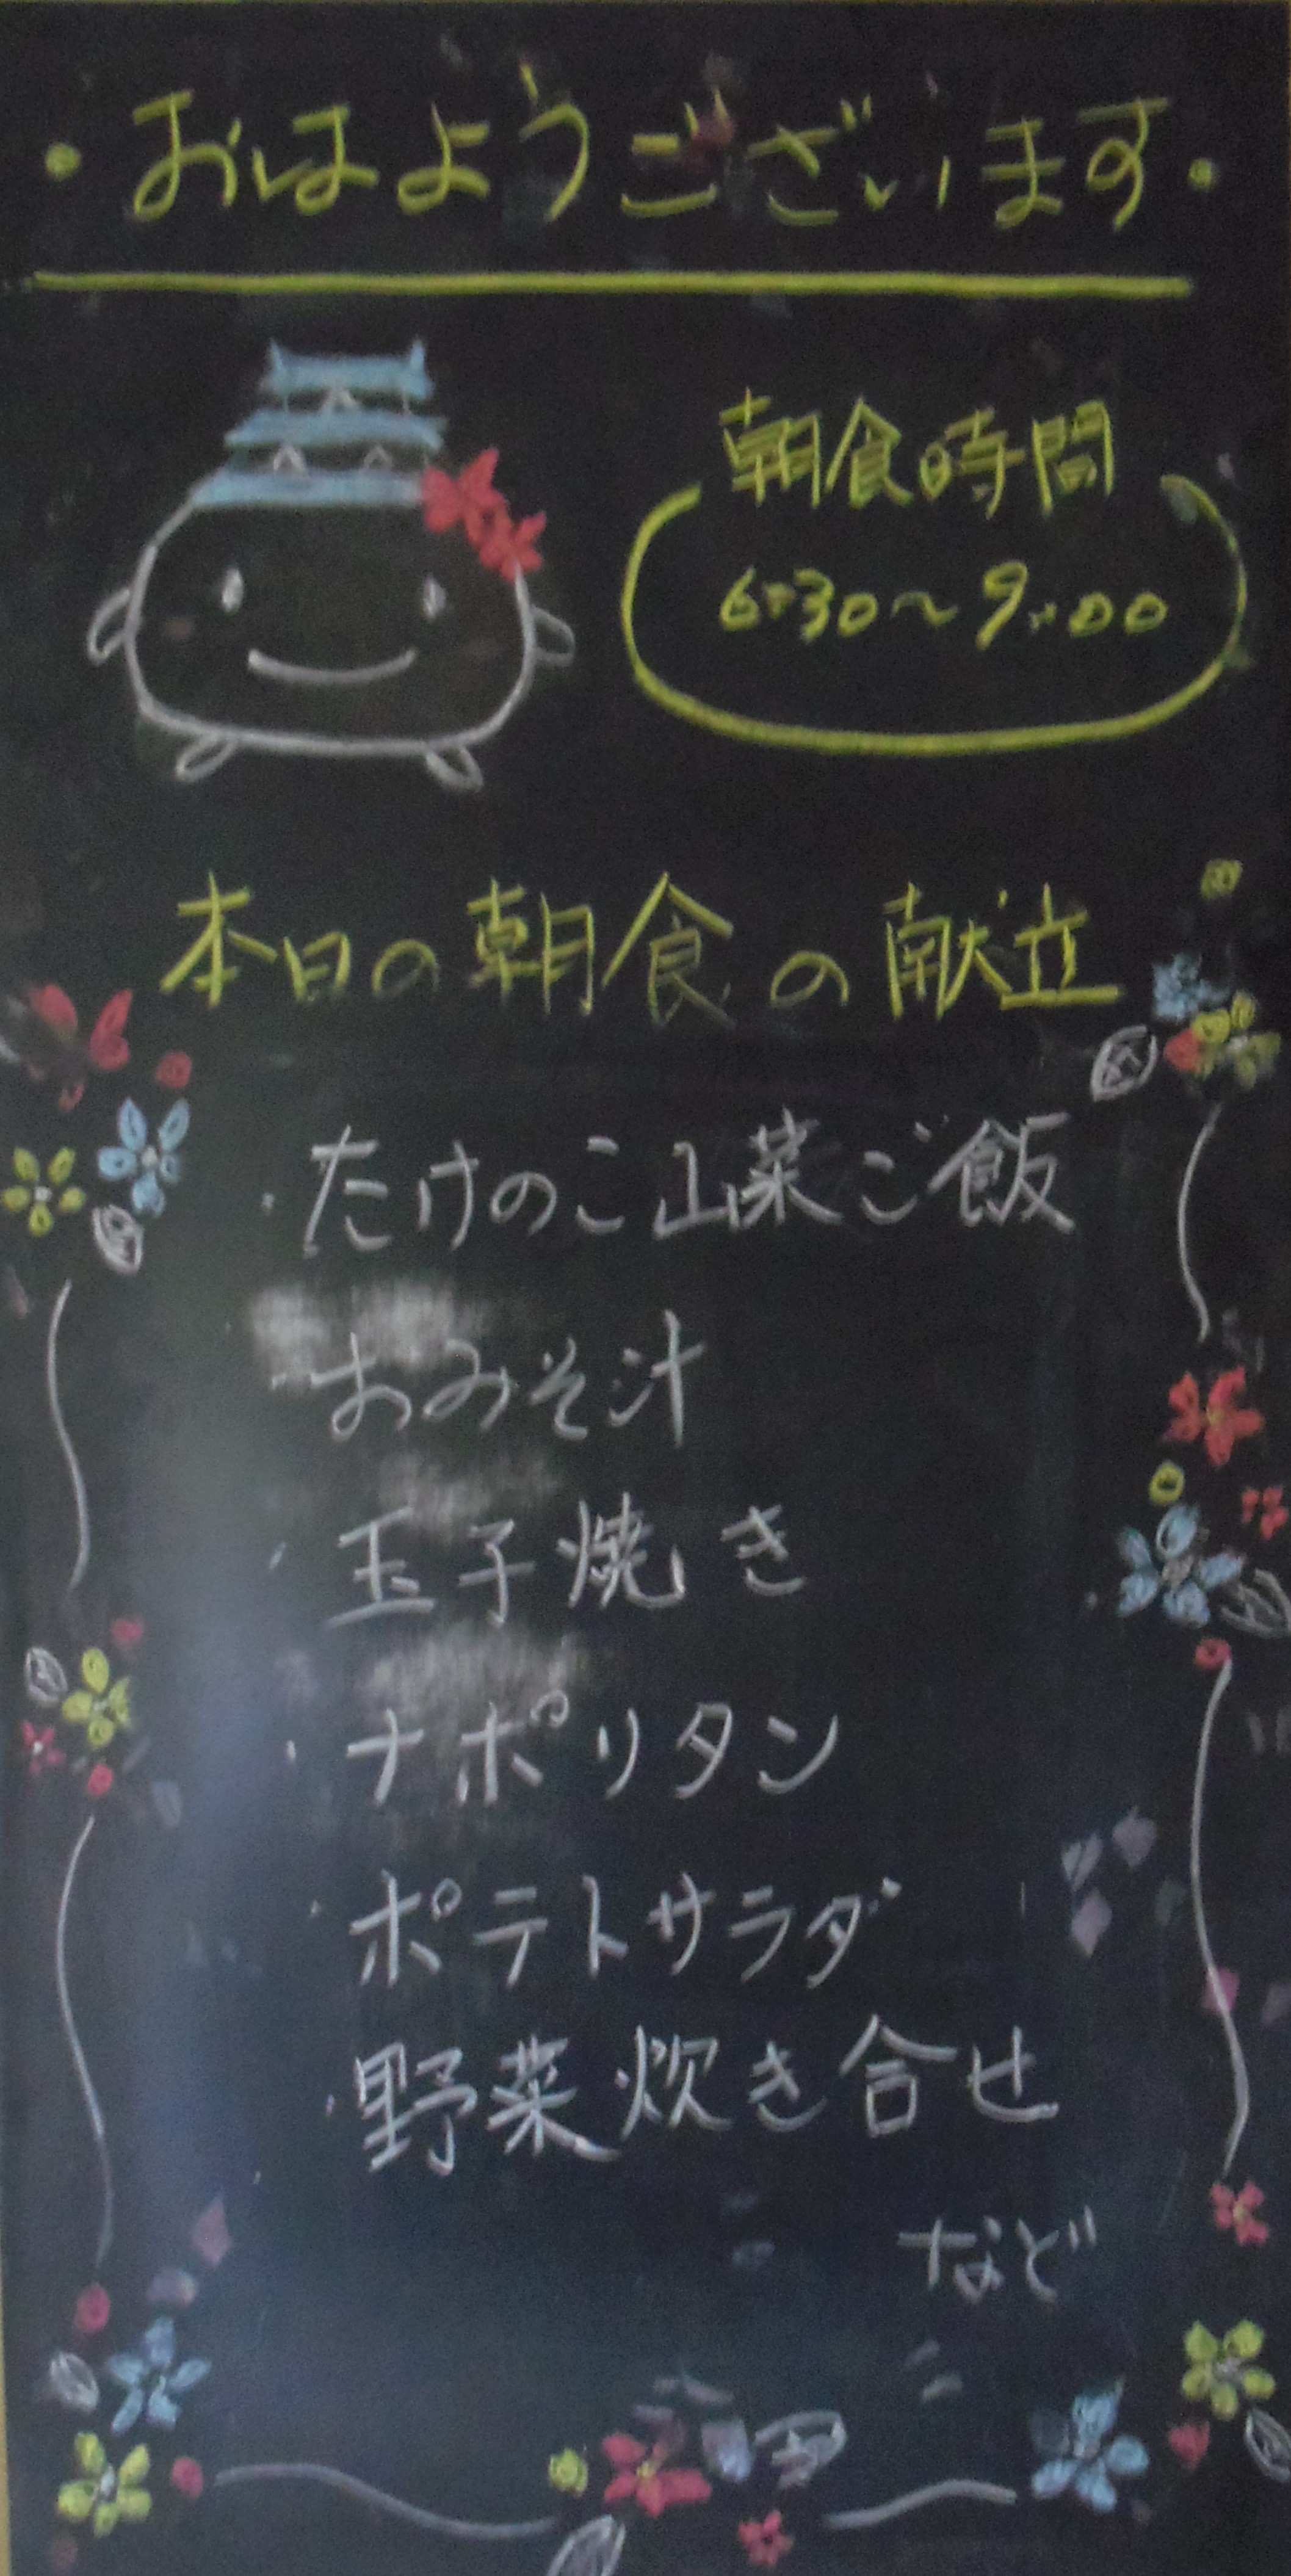 ・おはようございます・
朝食時間
6:30〜9:00
本日の朝食の献立
・たけのこ山菜ご飯
・おみそ汁
・玉子焼き
・ナポリタン
・ポテトサラダ
・野菜炊き合せ
など